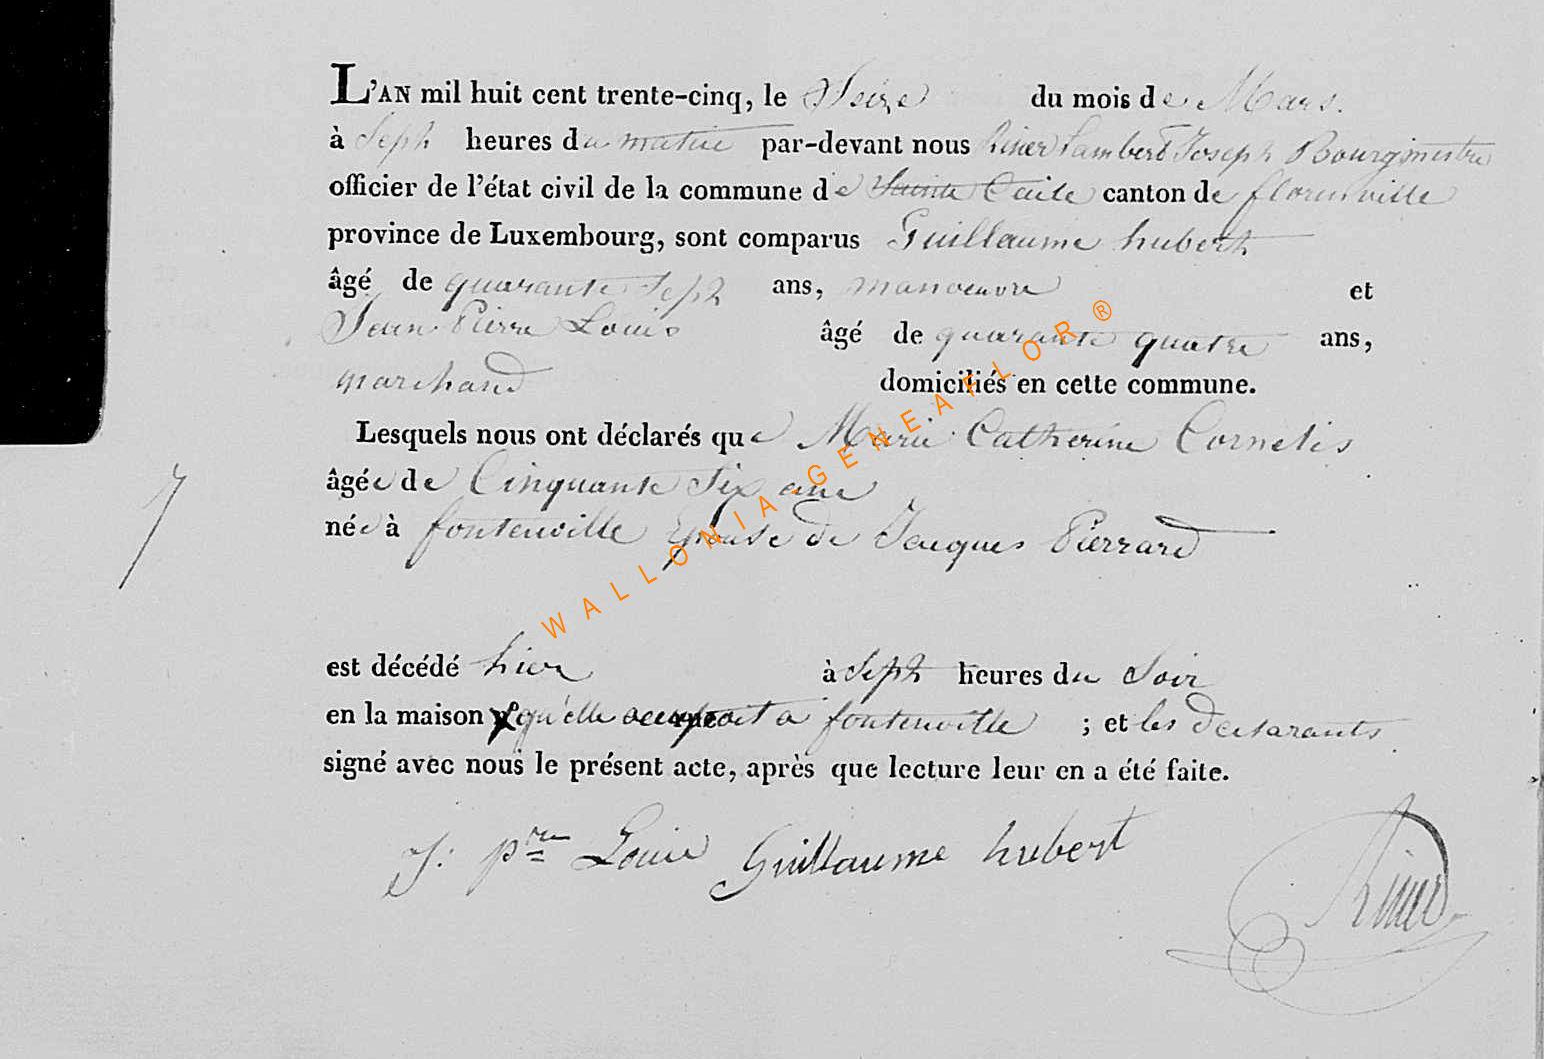 L'AN mil huit cent trente-cinq, le Seize du mois de Mars.
à Sept heures du matin par-devant nous Riner Lambert Joseph Bourgmestre
officier de l'état civil de la commune de Sainte Cecile canton de florenville
province de Luxembourg, sont comparus Guillaume hubert
âgé de quarante Sept ans, manoeuvre et
Jean Pierre Louis âgé de quarante quatre ans,
marchand domiciliés en cette commune.
Lesquels nous ont déclarés que Marie Catherine Cornelis
âgée de Cinquante Six ans
née à fontenoille Epouse de Jacques Pierrard
7
est décédé hier à Sept heures du Soir
en la maison qu'elle occupoit a fontenoille ; et les declarants
signé avec nous le présent acte, après que lecture leur en a été faite.
J: pre Louis Guillaume hubert
Riner
WALLONIA GENEAFLOR ®